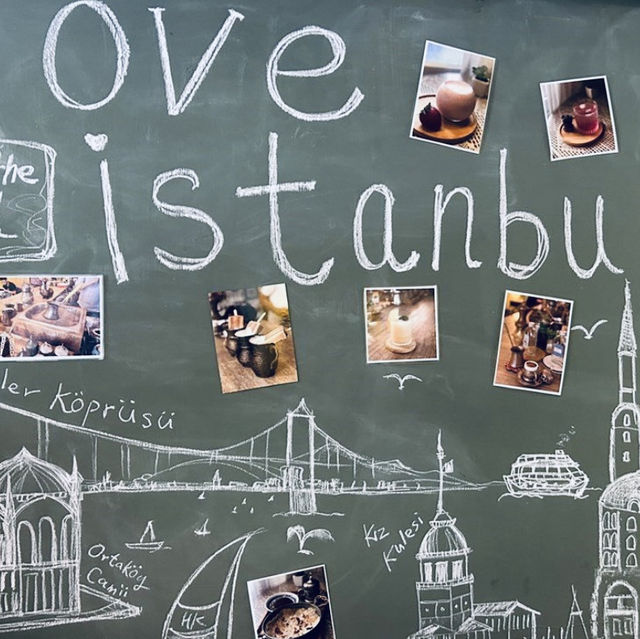 ove
the
istanbu
ler Köprüsü
Kız
Kulesi
Ortaköy
Camii
HK